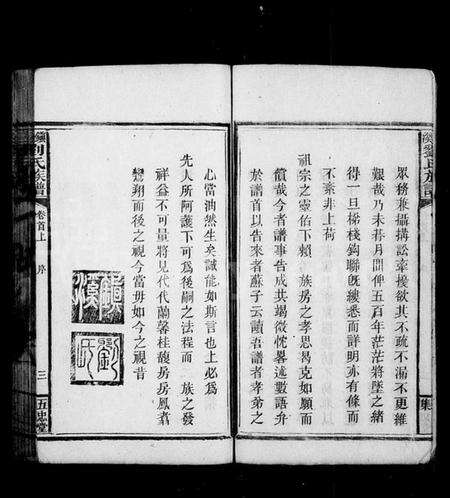 眾務兼攝搆訟牽擾欲其不疏不漏不更維
艱哉乃未朞月間俾五百年茫茫將墜之緒
得一旦梯棧鈎聯旣縷悉而詳明亦有條而
不紊非上荷
祖宗之靈佑下賴 族房之孝思曷克如願而
償哉今者譜事告成其竭微忱畧述數語弁
於譜首以告來者蘇子云讀吾譜者孝弟之
心當油然生矣誠能如斯言也上必爲
先人所阿護下可爲後嗣之法程而 族之發
祥益不可量將見代代蘭馨桂馥房房鳳翥
鸞翔而後之視今當毋如今之視昔
劉氏
劉氏族譜
卷首上
序
三
五忠堂